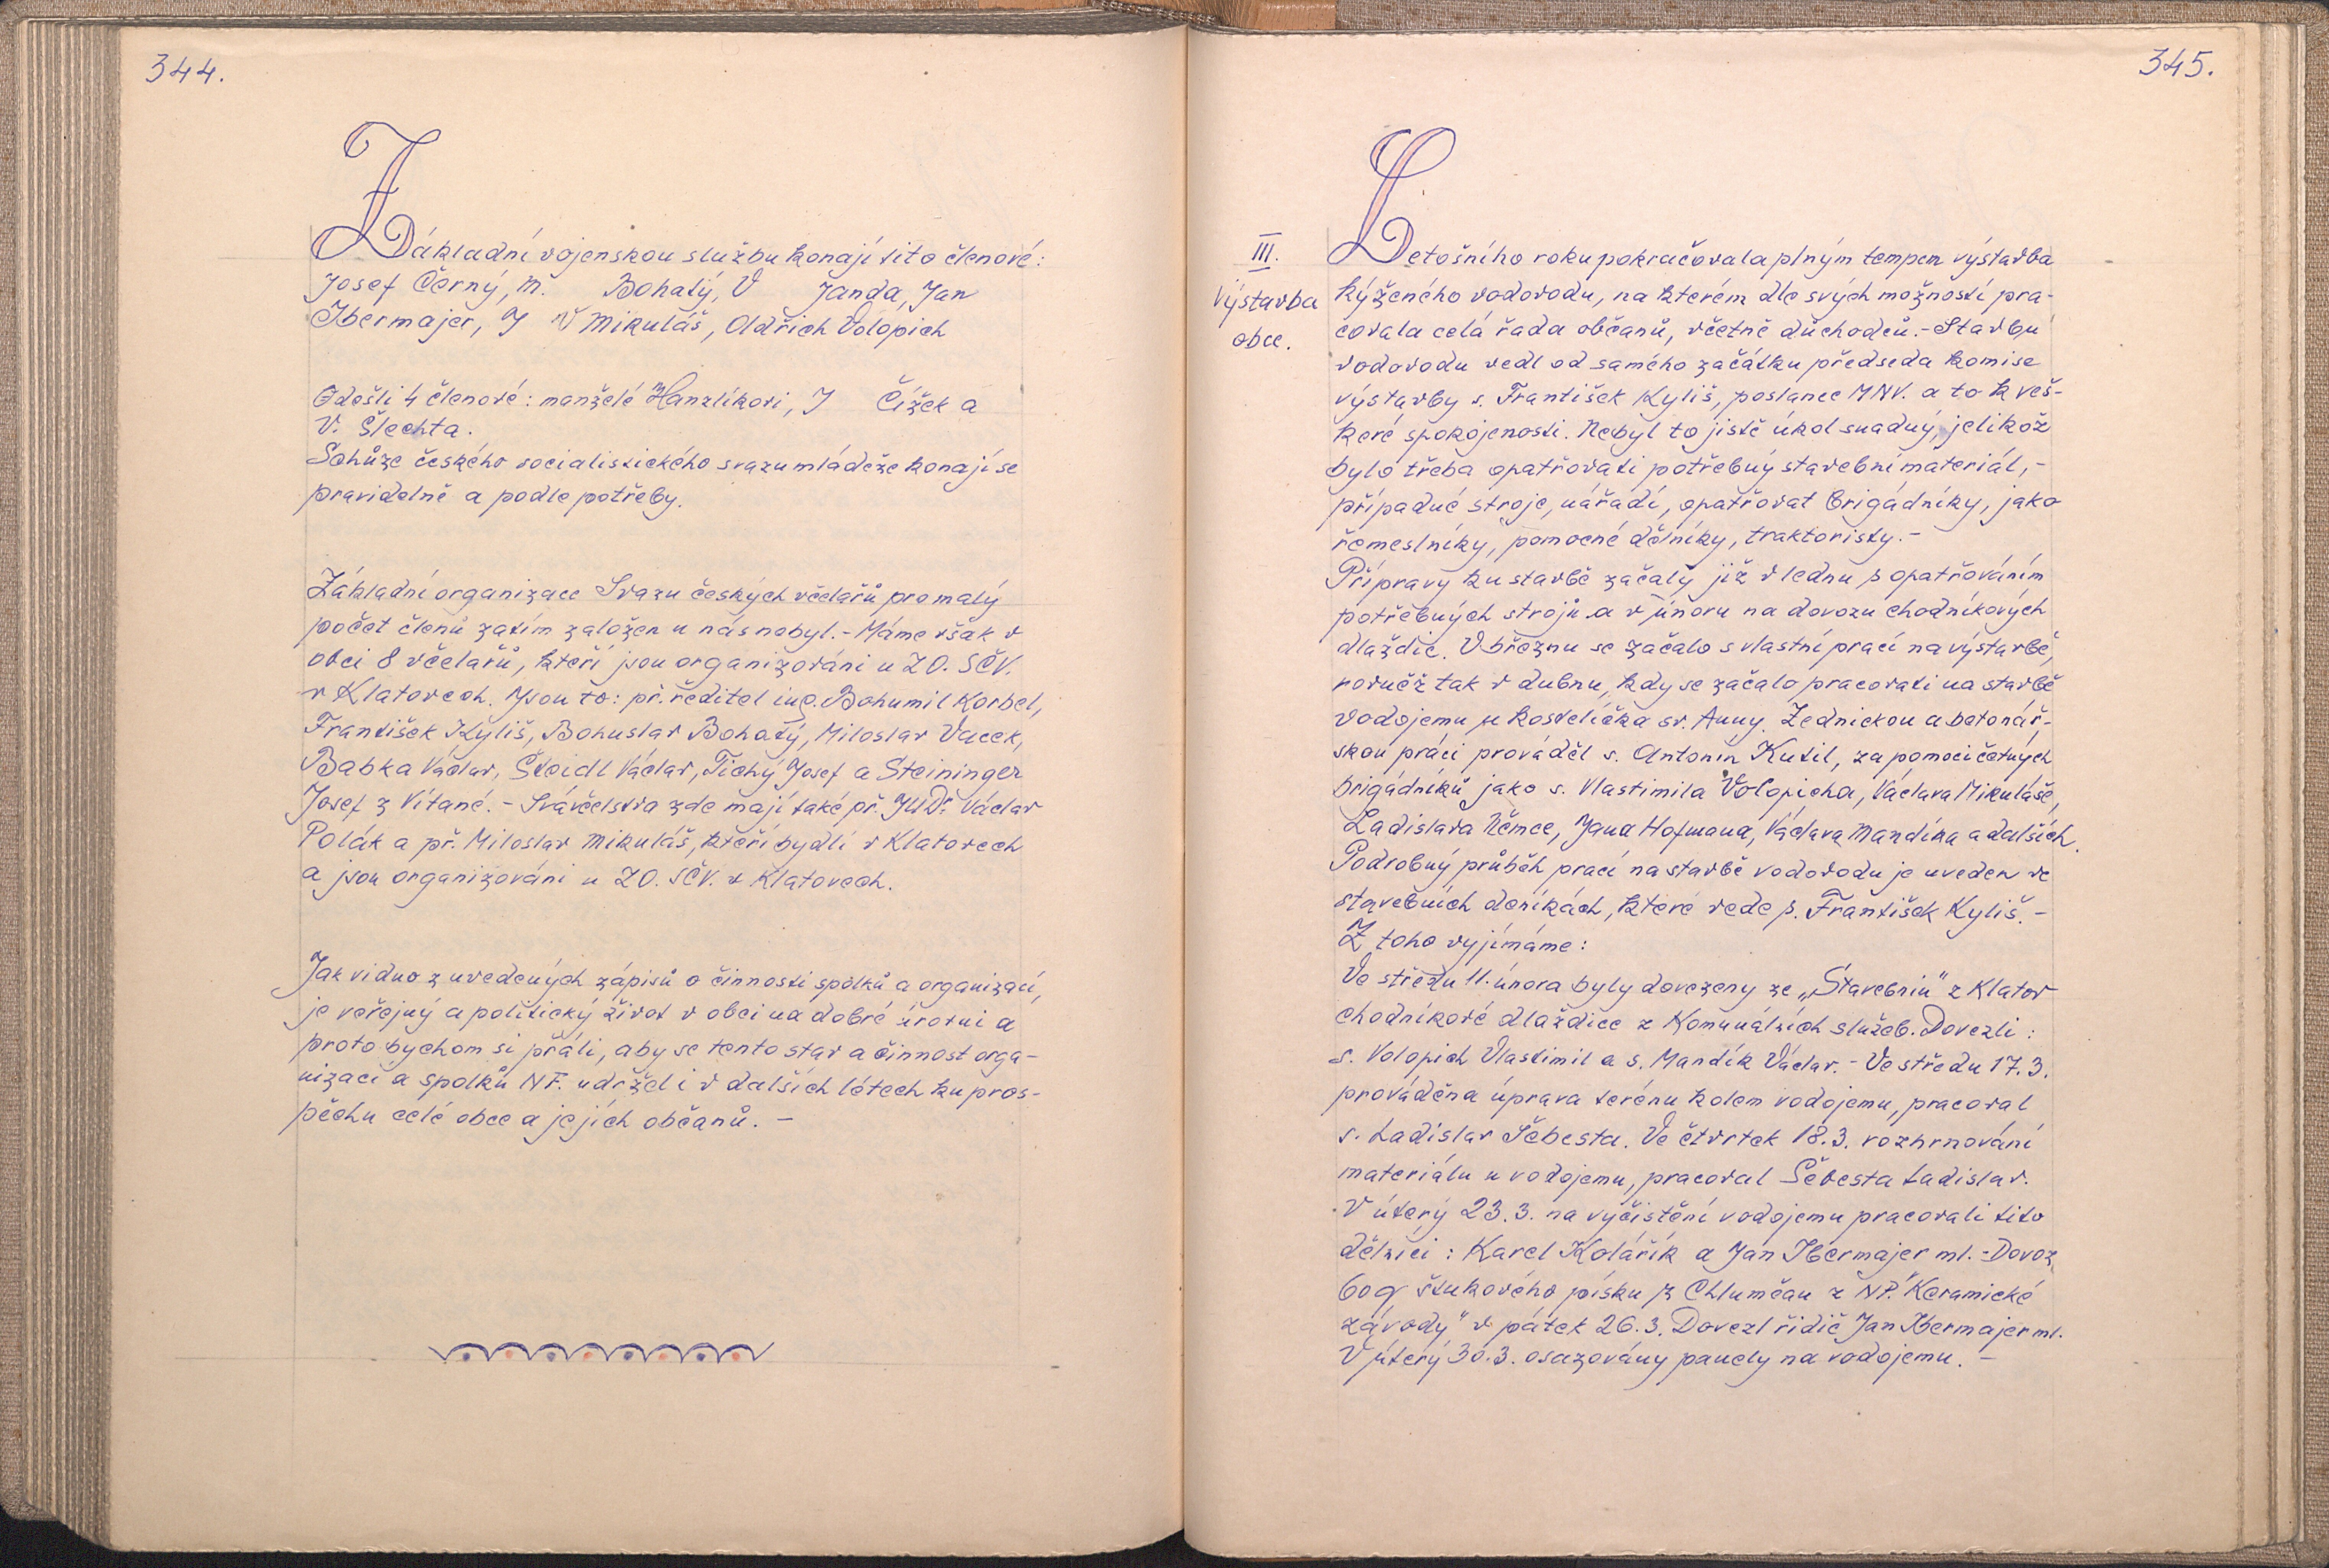 344.
Základní vojenskou službu konají tito členové:
Josef Černý, M. Bohatý, V Janda, Jan
Ibermajer, J V Mikuláš, Oldřich Volopich
Odešli 4 členové: manželé Hanzlíkovi, J Čížek a
V. Šlechta.
Schůze českého socialistického svazu mládeže konají se
pravidelně a podle potřeby.
Základní organizace Svazu českých včelařů pro malý
počet členů zatím založen u nás nebyl.- Máme však v
obci 8 včelařů, kteří jsou organizováni u ZO. SČV.
v Klatovech. Jsou to: př. ředitel ing. Bohumil Korbel,
František Kyliš, Bohuslav Bohatý, Miloslav Vacek,
Babka Václav, Šteidl Václav, Tichý Josef a Steininger
Josef z Vítané. - Svá včelstva zde mají také př. JUDr. Václav
Polák a př. Miloslav Mikuláš, kteří bydlí v Klatovech
a jsou organizováni u ZO. SČV. v Klatovech.
Jak vidno z uvedených zápisů o činnosti spolků a organizací,
je veřejný a politický život v obci na dobré úrovni a
proto bychom si přáli, aby se tento stav a činnost orga-
nizací a spolků NF. udržel i v dalších létech ku pros-
pěchu celé obce a jejích občanů. -
345.
III.
Výstavba
obce.
Letošního roku pokračovala plným tempem výstavba
kýženého vodovodu, na kterém dle svých možností pra-
covala celá řada občanů, včetně důchodců.- Stavbu
vodovodu vedl od samého začátku předseda komise
výstavby s. František Kyliš, poslanec MNV. a to k veš-
keré spokojenosti. Nebyl to jistě úkol snadný, jelikož
bylo třeba opatřovati potřebný stavební materiál, -
případné stroje, nářadí, opatřovat brigádníky, jako
řemeslníky, pomocné dělníky, traktoristy. -
Přípravy ku stavbě začaly již v lednu s opatřováním
potřebných strojů a v únoru na dovozu chodníkových
dlaždic. V březnu se začalo s vlastní prací na výstavbě,
rovněž tak v dubnu, kdy se začalo pracovati na stavbě
vodojemu u kostelíčka sv. Anny. Zednickou a betonář-
skou práci prováděl s. Antonín Kutil, za pomoci četných
brigádníků jako s. Vlastimila Volopicha, Václava Mikuláše,
Ladislava Němce, Jana Hofmana, Václava Mandíka a dalších.
Podrobný průběh prací na stavbě vodovodu je uveden ve
stavebních deníkách, které vede s. František Kyliš. -
Z toho vyjímáme:
Ve středu 11. února byly dovezeny ze „Stavebnin" z Klatov
chodníkové dlaždice z Komunálních služeb. Dovezli:
s. Volopich Vlastimil a s. Mandík Václav. - Ve středu 17.3.
prováděna úprava terénu kolem vodojemu, pracoval
s. Ladislav Šebesta. Ve čtvrtek 18.3. rozhrnování
materiálu u vodojemu, pracoval Šebesta Ladislav.
V úterý 23.3. na vyčistění vodojemu pracovali tito
dělníci: Karel Kolářík a Jan Ibermajer ml. - Dovoz
60q štukového písku z Chlumčan z NP. "Keramické
závody" v pátek 26.3. Dovezl řidič Jan Ibermajer ml.
V úterý 30.3. osazovány panely na vodojemu. -